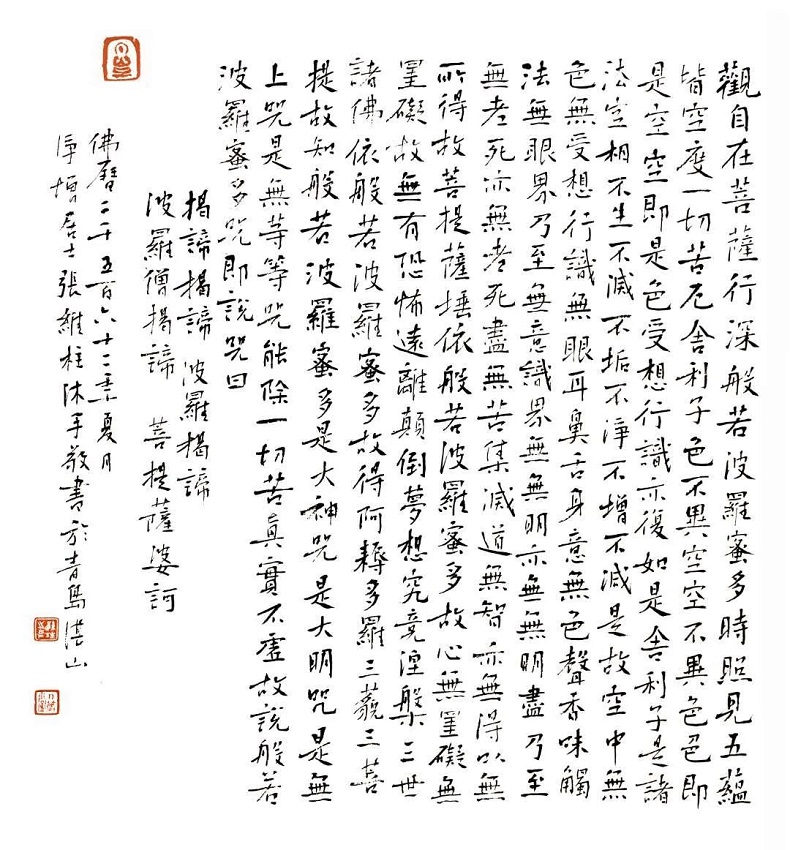 觀自在菩薩行深般若波羅蜜多時照見五蘊
皆空度一切苦厄舍利子色不異空空不異色色即
是空空即是色受想行識亦復如是舍利子是諸
法空相不生不滅不垢不淨不增不減是故空中無
色無受想行識無眼耳鼻舌身意無色聲香味觸
法無眼界乃至無意識界無無明亦無無明盡乃至
無老死亦無老死盡無苦集滅道無智亦無得以無
所得故菩提薩埵依般若波羅蜜多故心無罣礙無
罣礙故無有恐怖遠離顛倒夢想究竟涅槃三世
諸佛依般若波羅蜜多故得阿耨多羅三藐三菩
提故知般若波羅蜜多是大神咒是大明咒是無
上咒是無等等咒能除一切苦真實不虛故說般若
波羅蜜多咒即說咒曰
揭諦揭諦 波羅揭諦
波羅僧揭諦 菩提薩婆訶
佛曆二千五百六十二年夏月
淨增居士張維柱沐手敬書於青島湛山